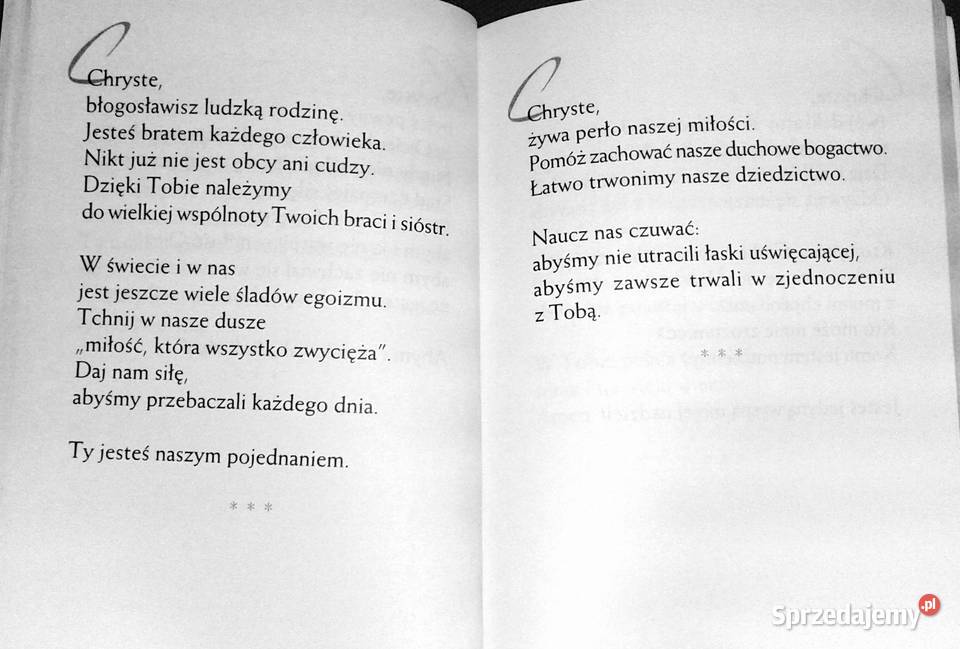 Chryste,
błogosławisz ludzką rodzinę.
Jesteś bratem każdego człowieka.
Nikt już nie jest obcy ani cudzy.
Dzięki Tobie należymy
do wielkiej wspólnoty Twoich braci i sióstr.
W świecie i w nas
jest jeszcze wiele śladów egoizmu.
Tchnij w nasze dusze
„miłość, która wszystko zwycięża”.
Daj nam siłę,
abyśmy przebaczali każdego dnia.
Ty jesteś naszym pojednaniem.
* * *
Chryste,
żywa perło naszej miłości.
Pomóż zachować nasze duchowe bogactwo.
Łatwo trwonimy nasze dziedzictwo.
Naucz nas czuwać:
abyśmy nie utracili łaski uświęcającej,
abyśmy zawsze trwali w zjednoczeniu
z Tobą.
* * *
Sprzedajemy.pl